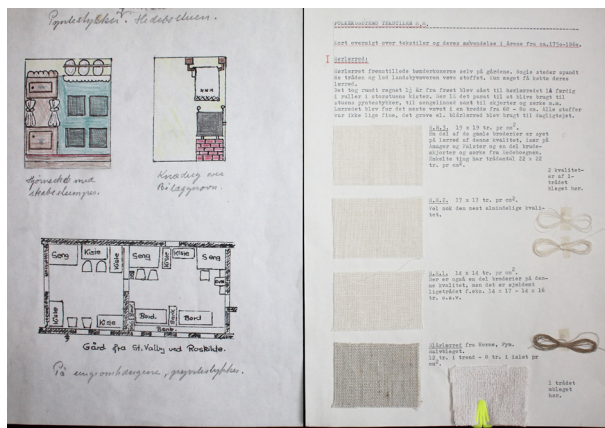 Pyntestykker. Hedebostuen.
Hjørneskab med
skabsstumper.
Knædug over
Bilæggerovn.
Seng
Kiste
Seng
Kiste
Seng
Kiste
Kiste
Bord
Bord
Bænk
Gård fra St. Valby ved Roskilde.
På sengeomhængene, pyntestykker.
FOLKEDRAGTENS TEKSTILER m.m.
Kort oversigt over tekstiler og deres anvendelse i årene fra ca.1750-1860.
Hørlærred:
Hørlærred fremstillede bønderkonerne selv på gårdene. Nogle steder spandt
de tråden og lod landsbyvæveren væve stoffet. Man meget få købte deres
lærred.
Det tog rundt regnet 1½ år fra frøet blev sået til hørlærredet lå færdig
i ruller i storstuens kister. Her lå det parat til at blive brugt til
stuens pyntestykker, til sengelinned samt til skjorter og særke m.m.
Lærredet blev for det meste vævet i en bredde fra 60 - 80 cm. Alle stoffer
var ikke lige fine, det grove el. blårlærred blev brugt til dagligtøjet.
19 x 19 tr. pr cm².
En del af de gamle broderier er syet
på lærred af denne kvalitet, især på
Amager og Falster og en del brude-
skjorter og særke fra Hedeboegnen.
Enkelte ting har trådantal 22 x 22
tr. pr cm².
2 kvalitet-
er af 1-
trådet
bleget hør.
17 x 17 tr. pr cm².
Vel nok den mest almindelige kvali-
tet.
14 x 14 tr. pr cm².
Der er også en del broderier på den-
ne kvalitet, men det er sjældent
ligetrådet f.eks. 14 x 17 - 14 x 16
tr. o.s.v.
Blårlærred fra Horne, Fyn.
Halvbleget.
12 tr. i trend - 8 tr. i islæt pr
cm².
1 trådet
ubleget
hør.